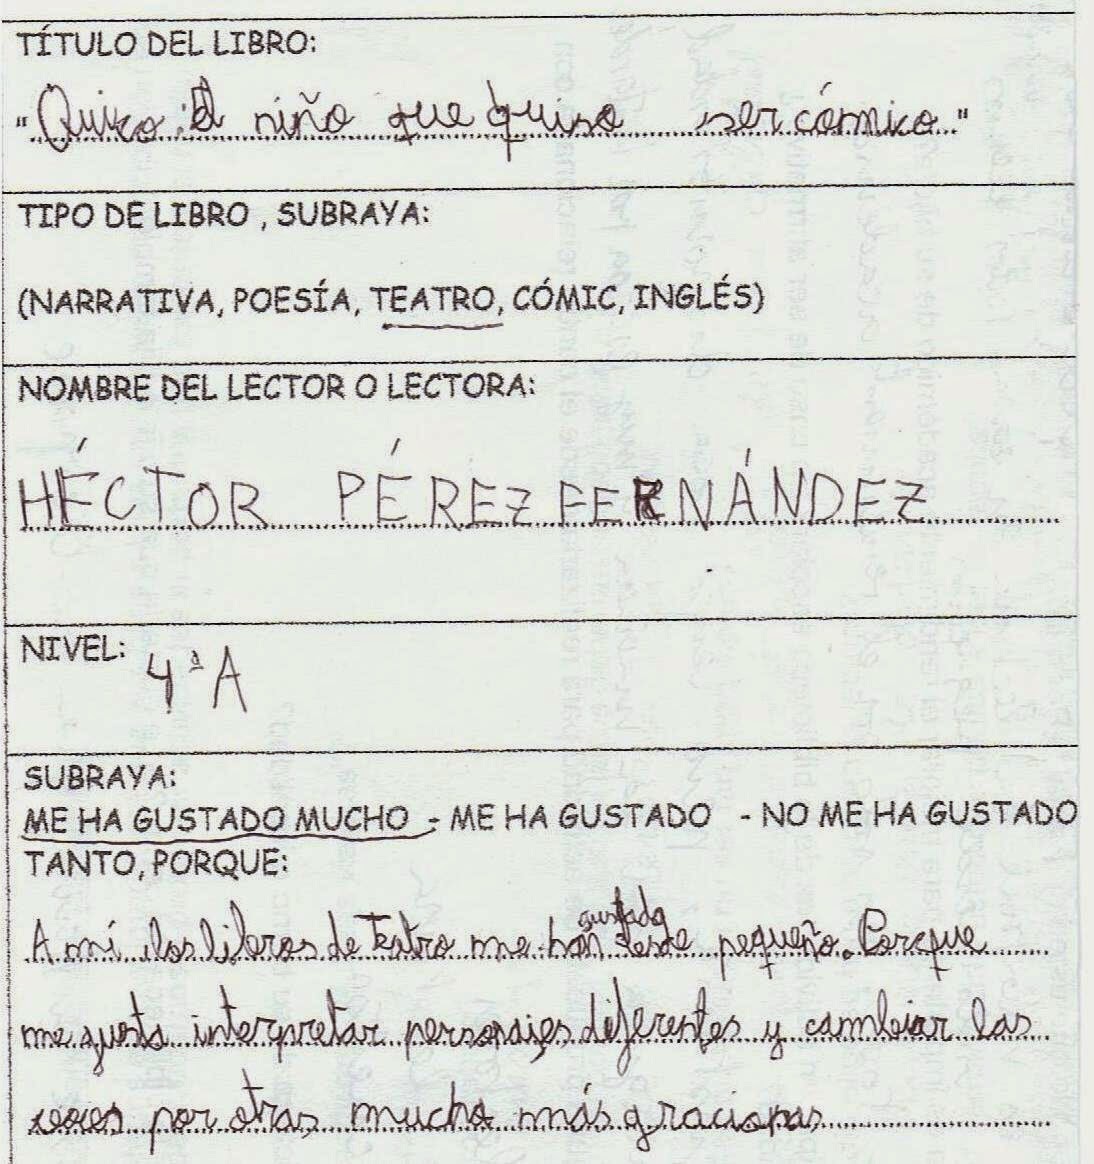 TÍTULO DEL LIBRO:
"Quico: El niño que quiso ser cómico."
TIPO DE LIBRO , SUBRAYA:
(NARRATIVA, POESÍA, TEATRO, CÓMIC, INGLÉS)
NOMBRE DEL LECTOR O LECTORA:
HÉCTOR PÉREZ FERNÁNDEZ
NIVEL: 4ªA
SUBRAYA:
ME HA GUSTADO MUCHO - ME HA GUSTADO - NO ME HA GUSTADO
TANTO, PORQUE:
gustado
A mí los libros de Teatro me han desde pequeño. Porque
me gusta interpretar personajes diferentes y cambiar las
voces por otras mucho más graciosas